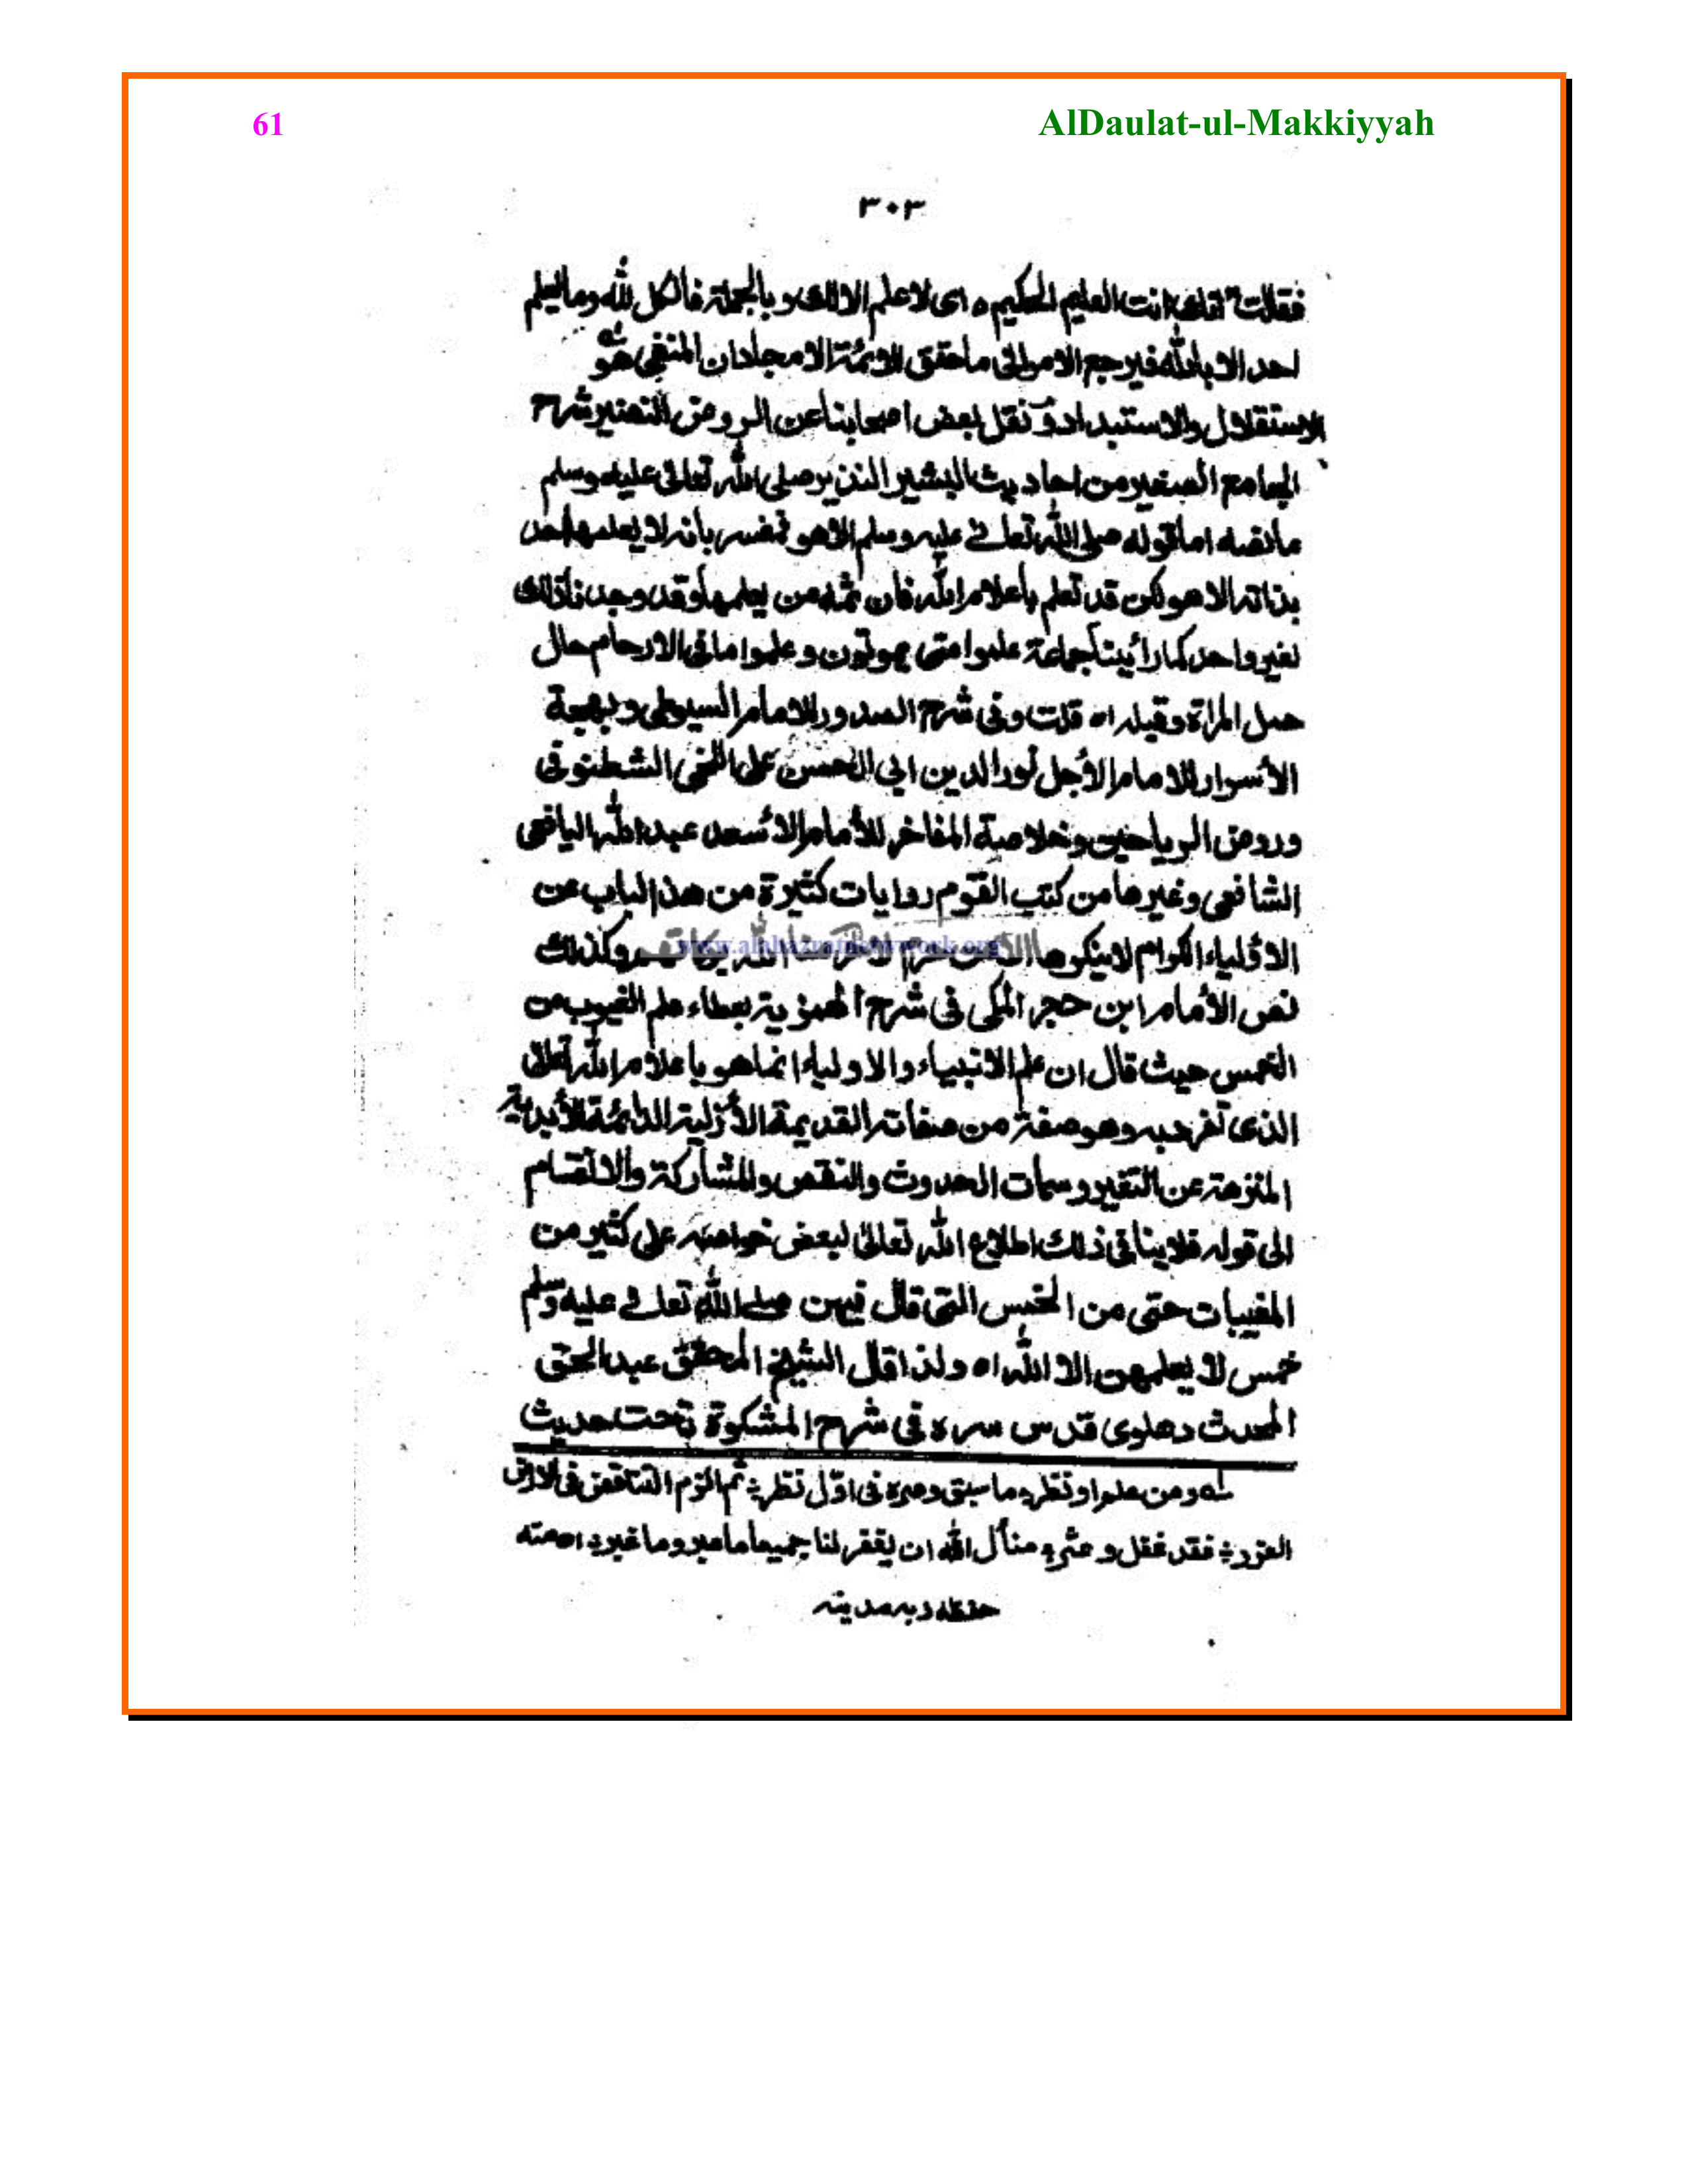 61
AlDaulat-ul-Makkiyyah
٣٠٣
فقالت انك انت العليم الحكيم ه اى لا علم الا لك و بالجملة فالكل لله وما يعلم
احد الا بالله فيرجع الامر الى ما حقق الائمة الامجاد ان المنفى هو
الاستقلال والاستبداد و نقل بعض اصحابنا عن الروض النضير شرح
الجامع الصغير من احاديث البشير النذير صلى الله تعالى عليه وسلم
ما نصه اما قوله صلى الله تعالى عليه وسلم الا هو فمفسر بانه لا يعلمها احد
بذاته الا هو لكن قد تعلم باعلام الله فان ثمه من يعلمها وقد وجدنا ذلك
لغير واحد كما رأينا جماعة علموا متى يموتون و علموا ما فى الارحام حال
حمل المراة وقبله اه قلت و فى شرح الصدور للامام السيوطى و بهجة
الأسرار للامام الأجل نور الدين ابى الحسن على اللخمى الشطنوفى
وروض الرياحين وخلاصة المفاخر للأمام الأسعد عبد الله اليافعى
الشافعى وغيرها من كتب القوم روايات كثيرة من هذا الباب عن
الاولياء الكرام لا ينكرها الا من حرم لا حرمنا الله بركاتهم وكذلك
www.alahazratnetwork.org
نص الأمام ابن حجر المكى فى شرح الهمزية بعطاء علم الغيوب من
الخمس حيث قال ان علم الانبياء والاولياء انما هو باعلام الله تعالى
الذى تفرد به وهو صفة من صفاته القديمة الأزلية الدائمة الأبدية
المنزهة عن التغير وسمات الحدوث والنقص والمشاركة والانقسام
الى قوله فلا ينافى ذلك اطلاع الله تعالى لبعض خواصه على كثير من
المغيبات حتى من الخمس التى قال فيهن صلى الله تعالى عليه وسلم
خمس لا يعلمهن الا الله اه ولذا قال الشيخ المحقق عبد الحق
المحدث دهلوى قدس سره فى شرح المشكوة تحت حديث
له ومن علم او نظر ما سبق وصره فى اوّل نظر ثم الزم التناقض فى
الغرر فقد غفل و عثر نسأل الله ان يغفر لنا جميعا ما صبر وما غبر اه منه
حفظه ربه مدينه